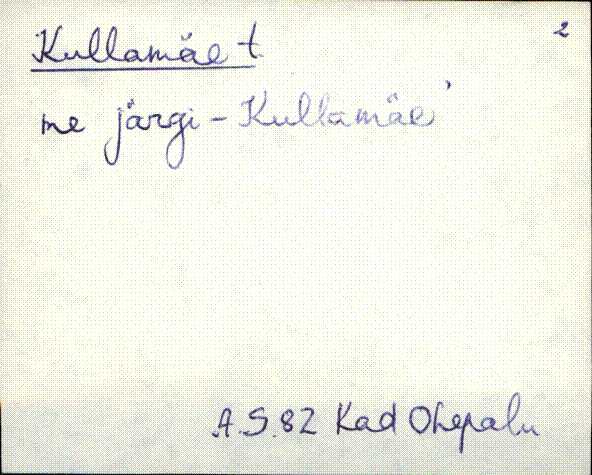 2
Kullamäe t.
me järgi - Kullamäe'
A.S. 82 Kad Ohepalu